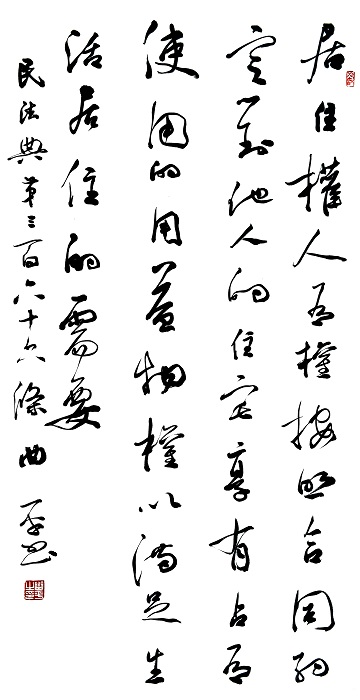 居住權人有權按照合同約
定對他人的住宅享有占有
使用的用益物權以滿足生
活居住的需要
民法典第三百六十六條 曲